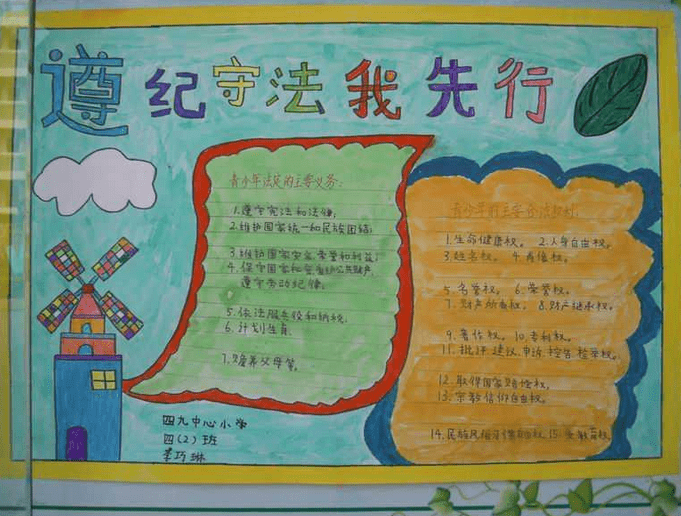 遵纪守法我先行
青少年法英的主要义务:
1.遵守宪法和法律;
2.维护国家统一和民族团结;
3.维护国家安全、荣誉和利益;
4.保守国家和密爱护公共财产,
遵守劳动纪律;
5.依法服兵役和纳税;
6.计划生育
7.赡养父母等。
青少年的主要合法权利:
1.生命健康权。 2.人身自由权。
3.姓名权。 4.肖像权。
5.名誉权。 6.荣誉权。
7.财产所有权。 8.财产继承权。
9.著作权。 10.专利权。
11.批评、建议、申诉、控告、检举权。
12.取得国家赔偿权。
13.宗教信仰自由权。
14.民族风俗习惯自由权。15.受教育权。
四九中心小学
四(2)班
李巧琳